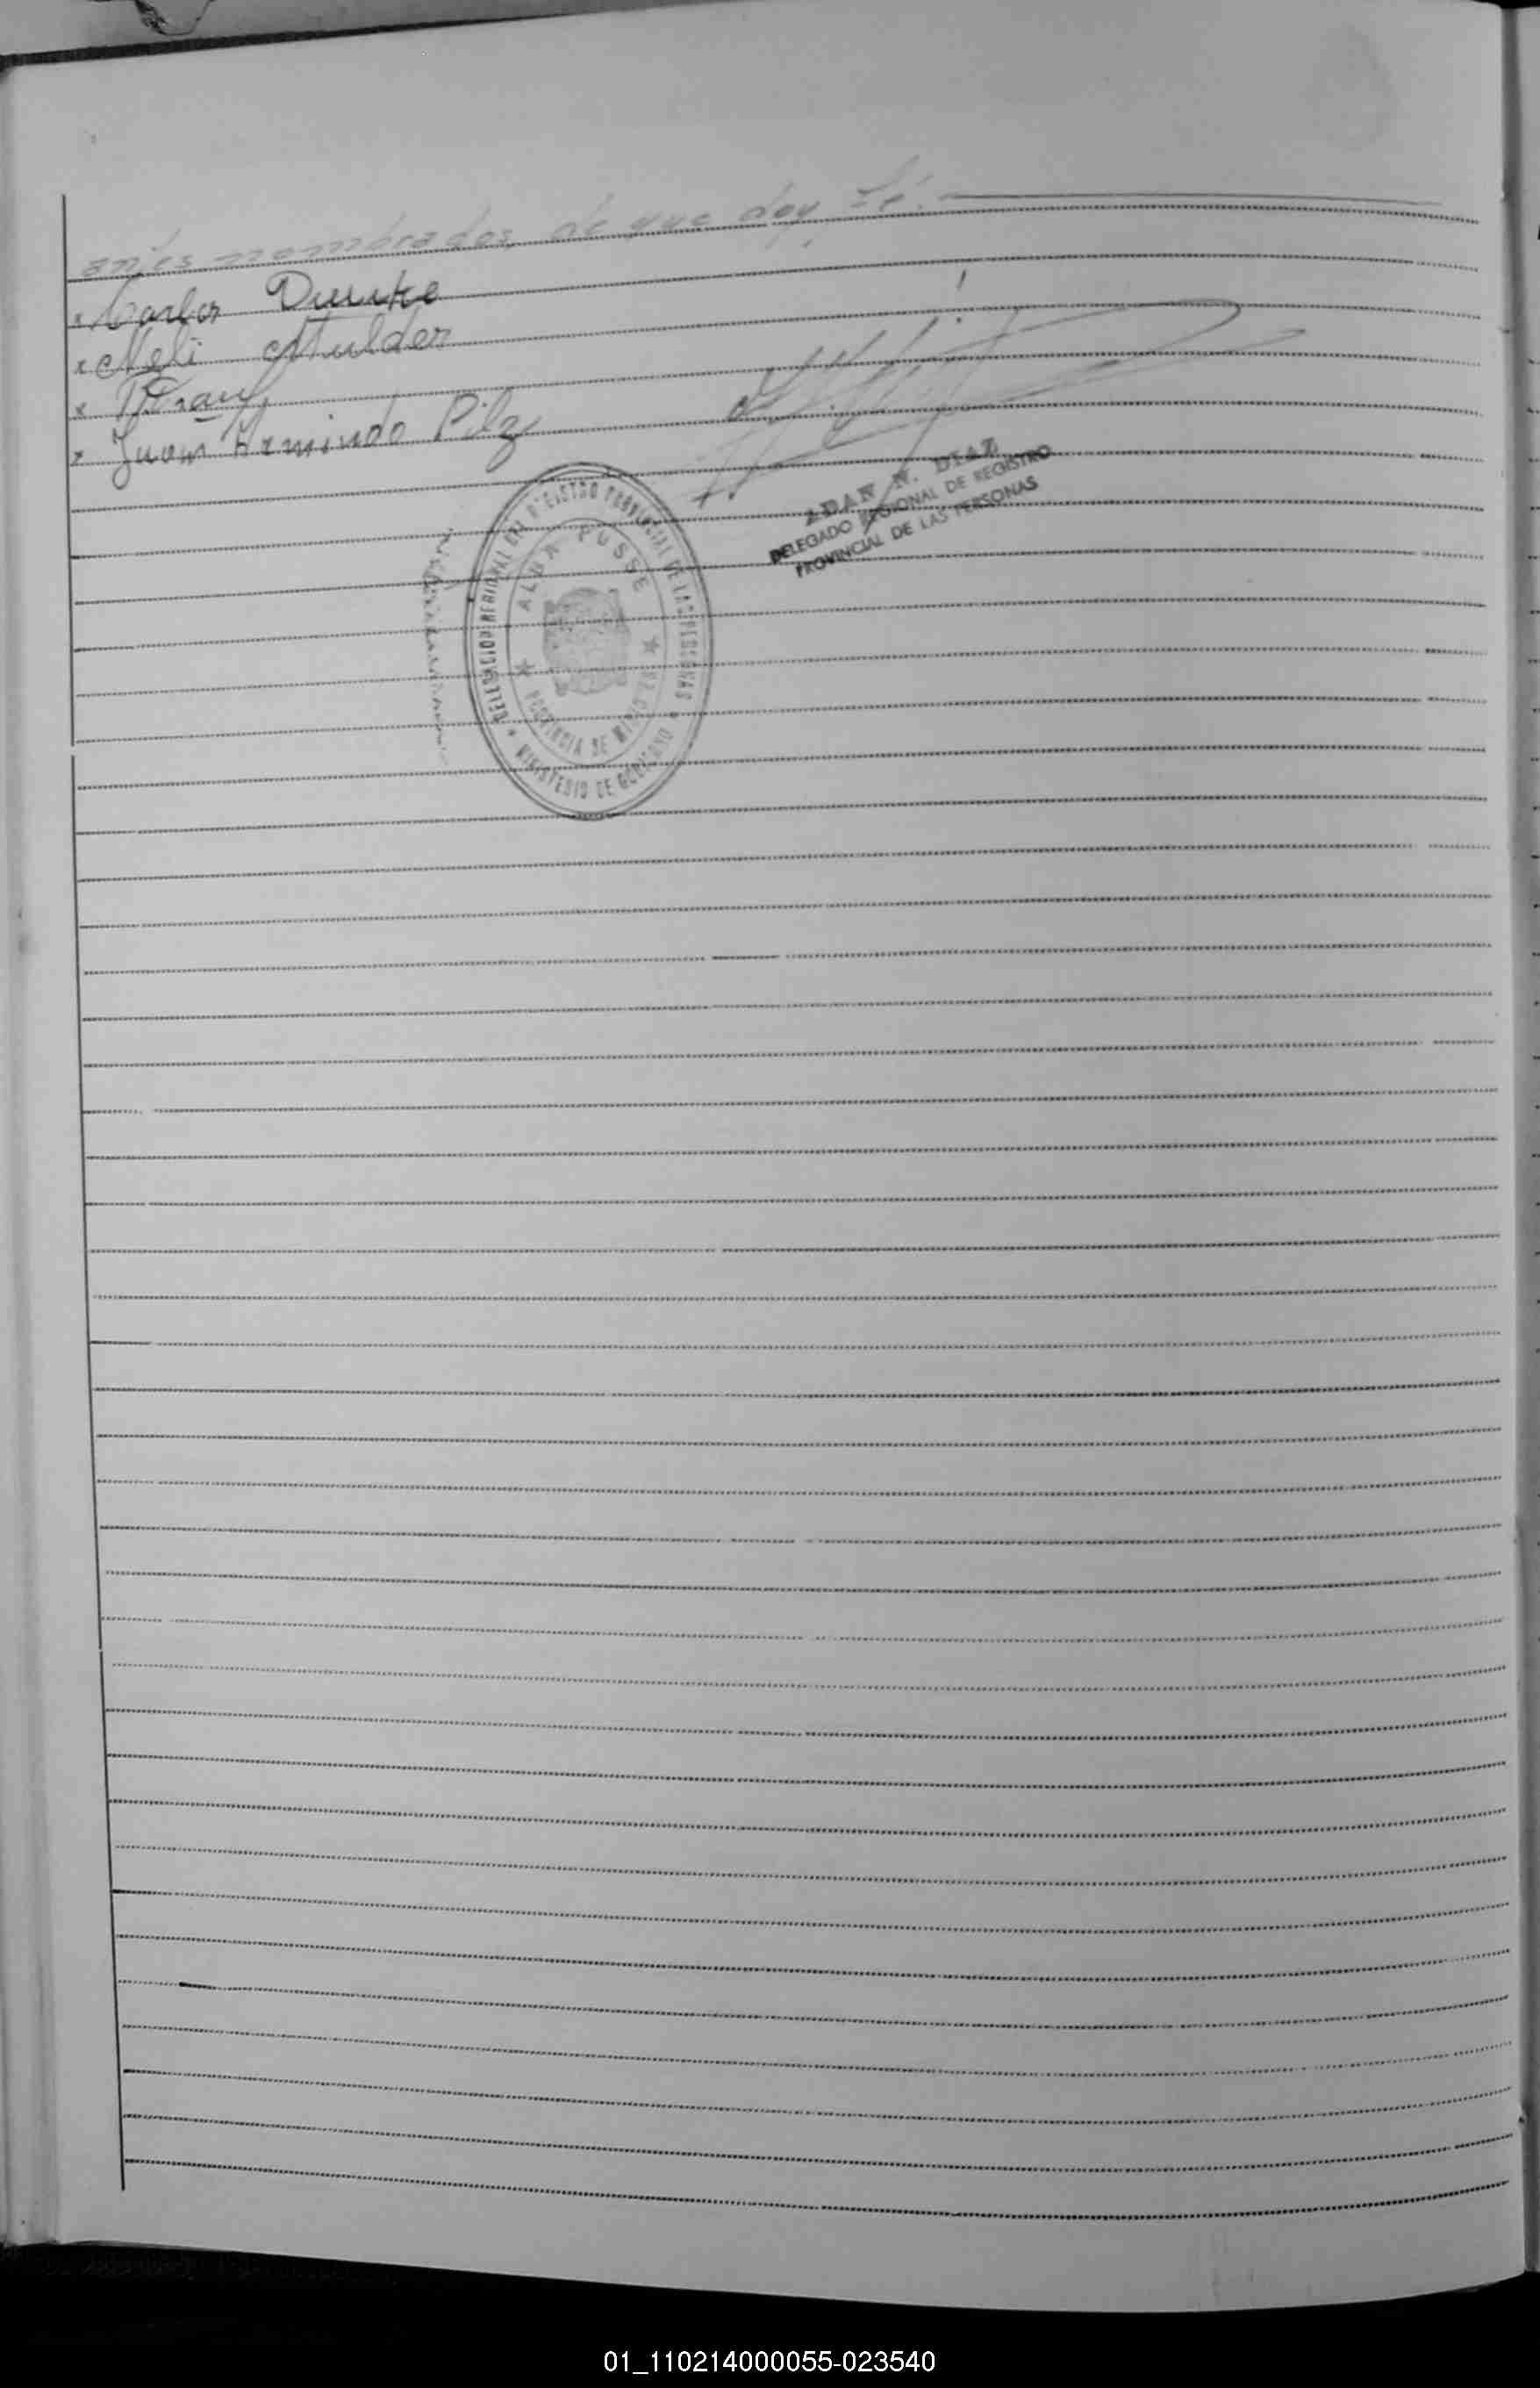 antes nombrados, de que doy fé.
x Carlos Dunke
x Neli Mulder
x
x Juan Armindo Pilz
ADAN N. DIAZ
DELEGADO REGIONAL DE REGISTRO
PROVINCIAL DE LAS PERSONAS
DELEGACION REGIONAL DEL REGISTRO PROVINCIAL DE LAS PERSONAS
ALBA POSSE
PROVINCIA DE MISIONES
MINISTERIO DE GOBIERNO
01_110214000055-023540